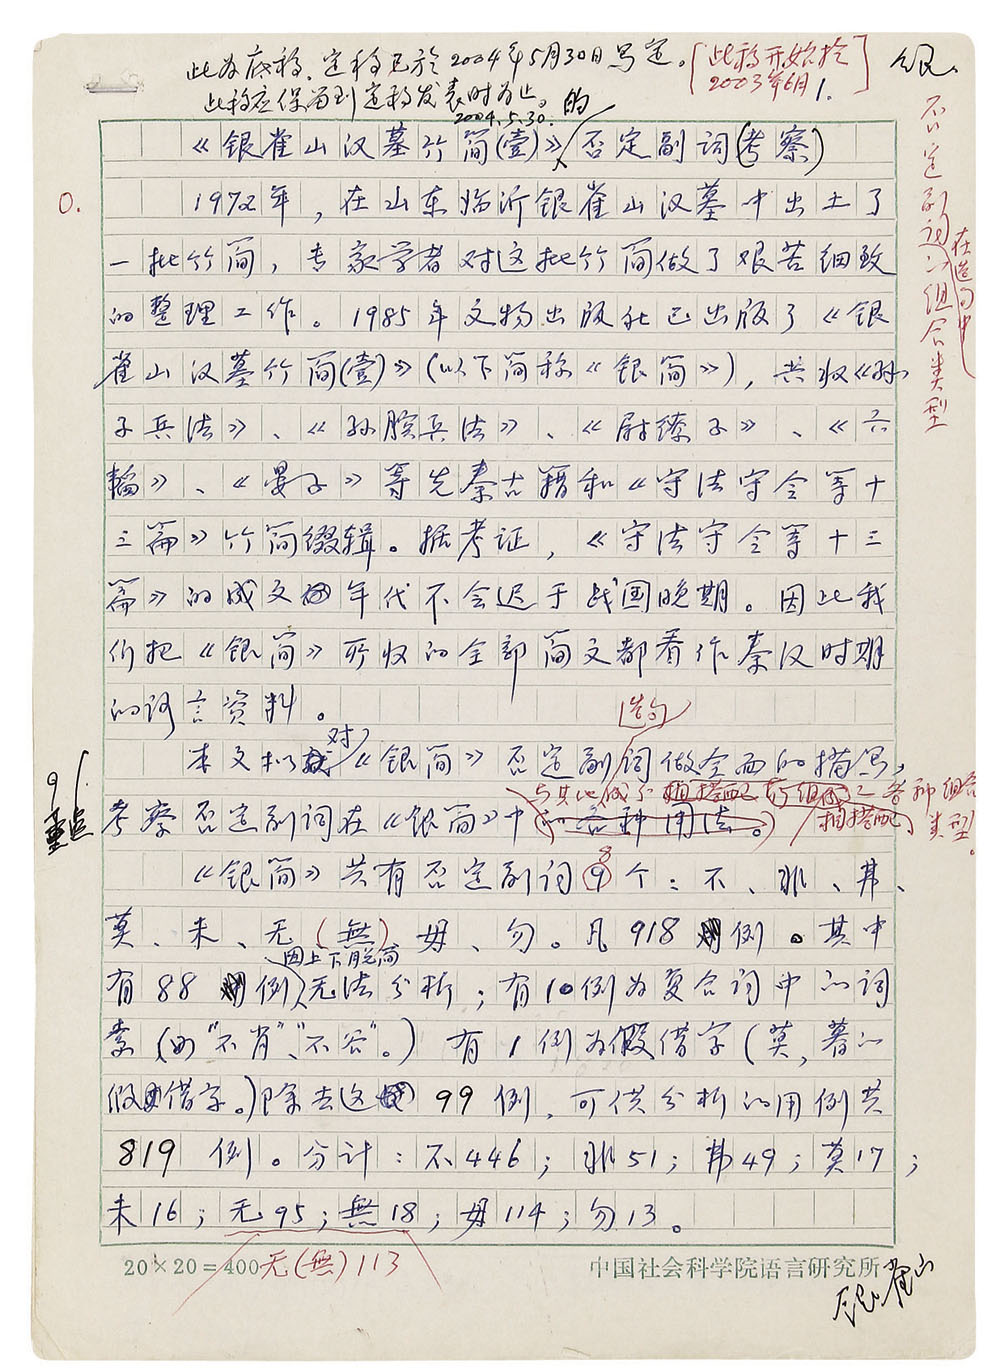 此为底稿，定稿已于2004年5月30日写定。[此稿开始于
2003年6月1.
银.
此稿应保留到定稿发表时为止。
2004.5.30.
《银雀山汉墓竹简(壹)》的否定副词(考察)
0.
1972年，在山东临沂银雀山汉墓中出土了
一批竹简，专家学者对这批竹简做了艰苦细致
的整理工作。1985年文物出版社已出版了《银
雀山汉墓竹简(壹)》(以下简称《银简》)，共收《孙
子兵法》、《孙膑兵法》、《尉缭子》、《六
韬》、《晏子》等先秦古籍和《守法守令等十
三篇》竹简缀辑。据考证，《守法守令等十三
篇》的成文年代不会迟于战国晚期。因此我
们把《银简》所收的全部简文都看作秦汉时期
的语言资料。
造句
本文拟对《银简》否定副词做全面的描写，
与其他成分 组成之各种组合
相搭配
类型。
考察否定副词在《银简》中的各种用法。
《银简》共有否定副词8个：不、非、弗、
莫、未、无(無)毋、勿。凡918例。其中
因上下脱简
有88例无法分析；有10例为复合词中的词
素(如“不肖”、“不谷”。)有1例为假借字(莫，暮的
假借字。)除去这99例，可供分析的用例共
819例。分计：不446；非51；弗49；莫17；
未16；无95；無18；毋114；勿13。
无(無)113
20×20=400
中国社会科学院语言研究所
银雀山
不定副词
在造句中
组合类型
91.
重点